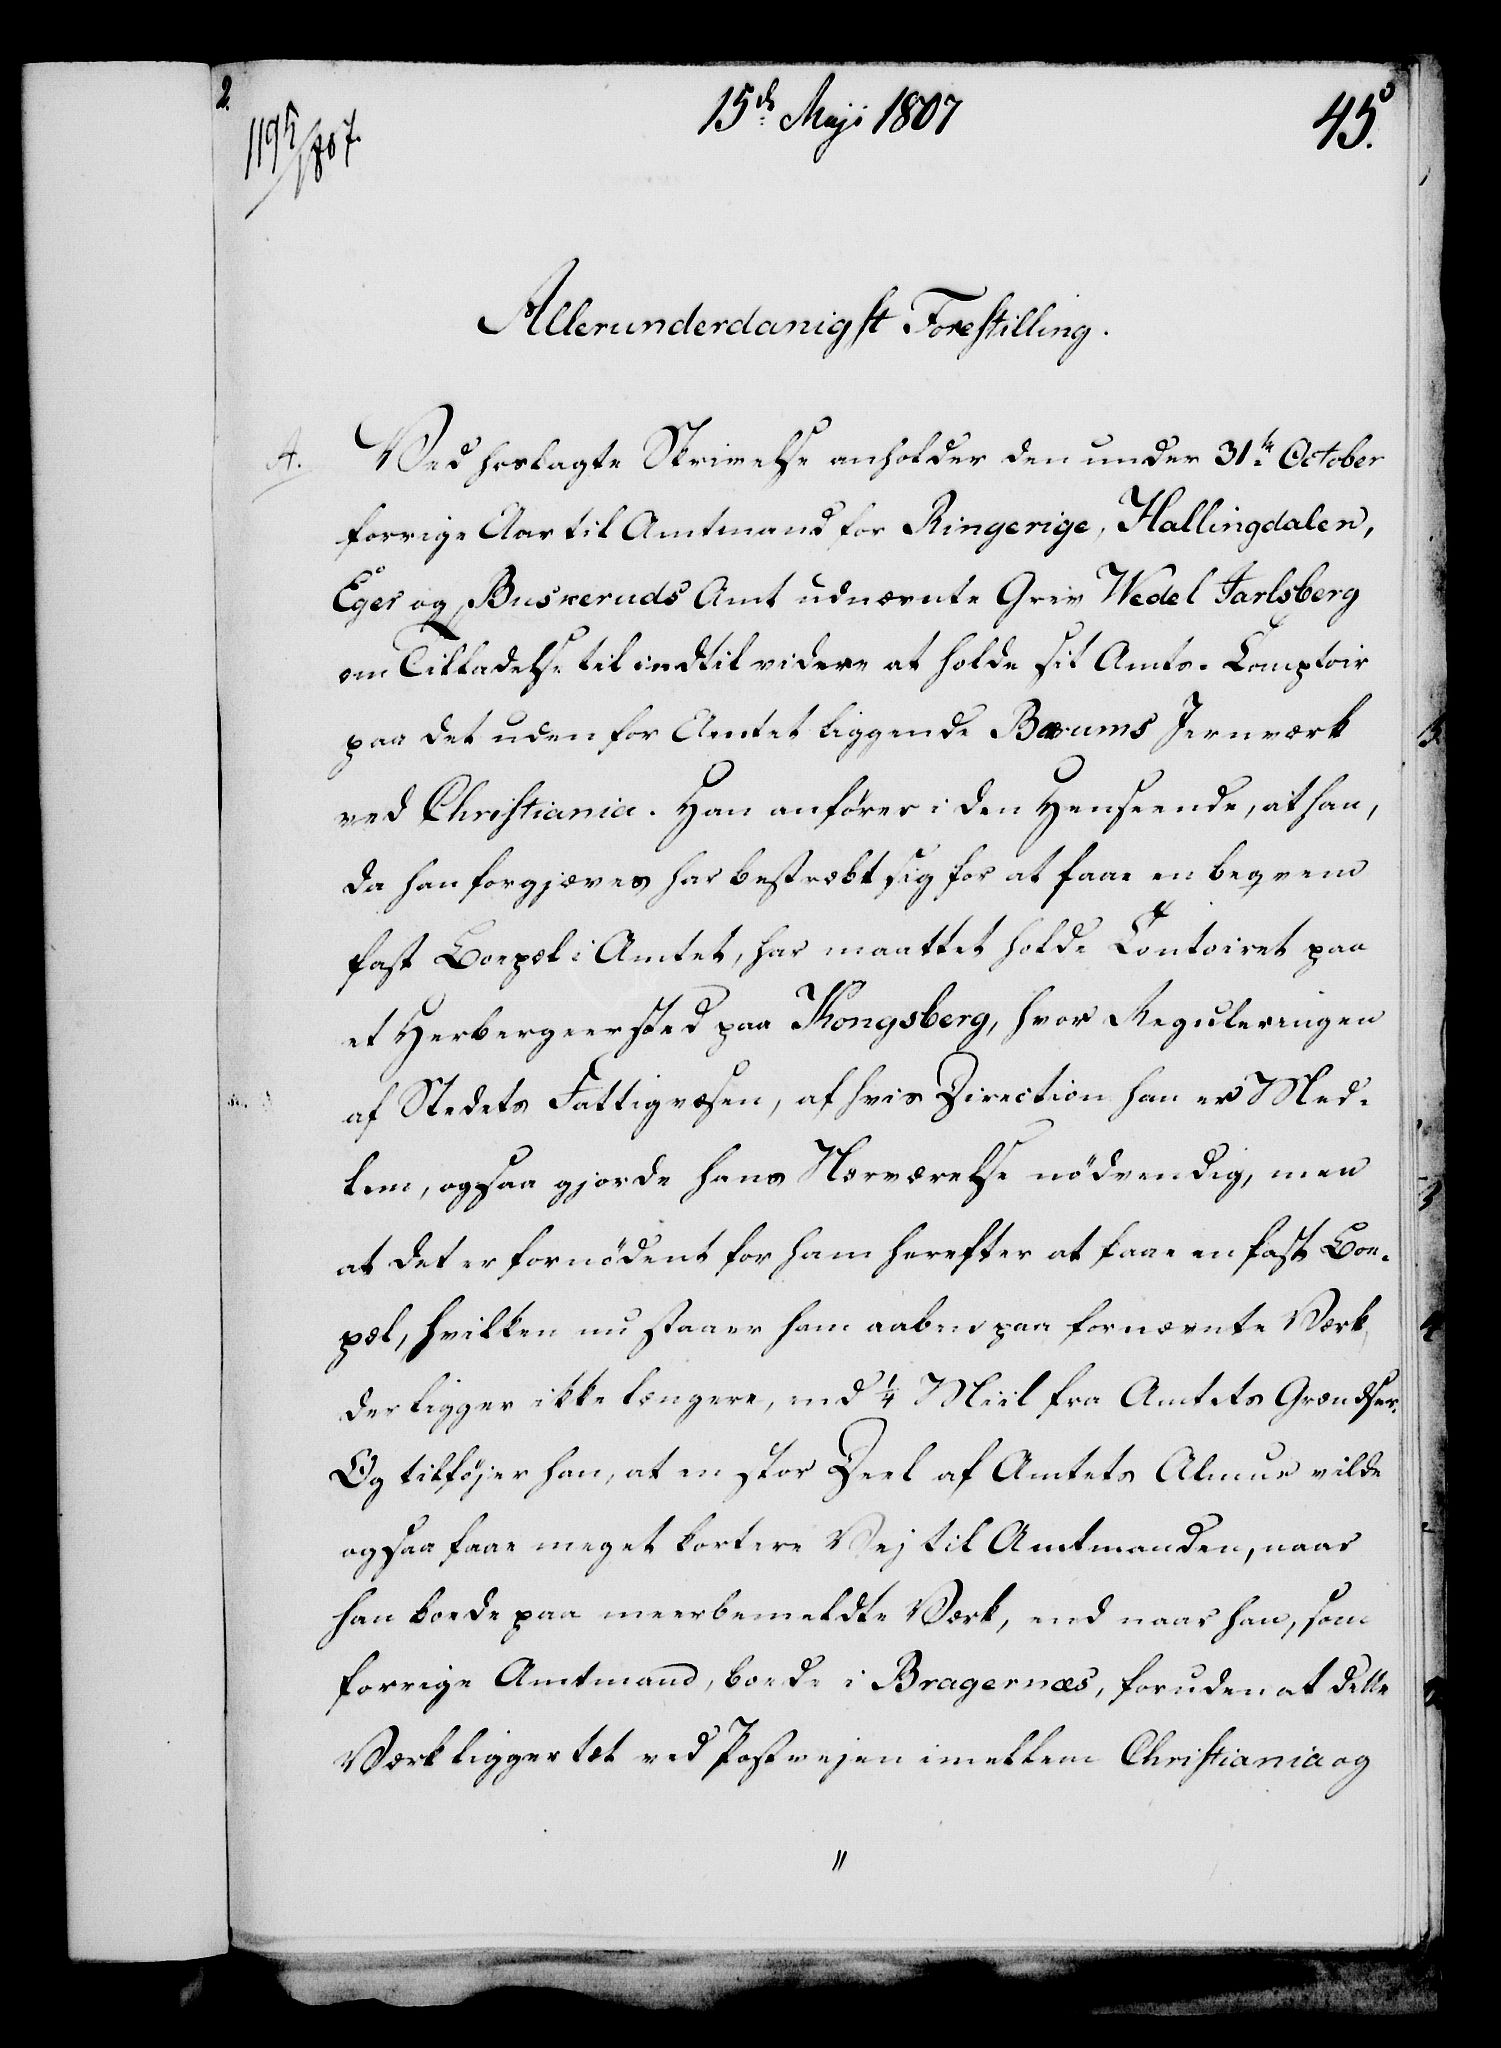 2.
15de Maji 1807
45.
1195/1807.
Allerunderdanigst Forestilling.
A. Ved hoslagte Skrivelse anholder den under 31te October
forrige Aar til Amtmand for Ringerige, Hallingdalen,
Eger og Buskeruds Amt udnævnte Grev Wedel Jarlsberg
om Tilladelse til indtil videre at holde sit Amts-Comptoir
paa det uden for Amtet liggende Bærums Jernværk
ved Christiania. Han anfører i den Henseende, at han,
da han forgjæves har bestræbt sig for at faae en beqvem
fast Boepæl i Amtet, har maattet holde Contoiret paa
et Herbergeersted paa Kongsberg, hvor Reguleringen
af Stedets Fattigvæsen, af hvis Direction han er Med-
lem, ogsaa gjorde hans Nærværelse nödvendig, men
at det er fornödent for ham herefter at faae en fast Boe-
pæl, hvilken nu staaer ham aaben paa fornævnte Værk,
der ligger ikke længere, end 1/4 Miil fra Amtets Grændser.
Og tilföjer han, at en stor Deel af Amtets Almue vilde
ogsaa faae meget kortere Vej til Amtmanden, naar
han boede paa meerbemeldte Værk, end naar han, som
forrige Amtmand, boede i Bragernæs, foruden at dette
Værk ligger tæt ved Postvejen imellem Christiania og
"